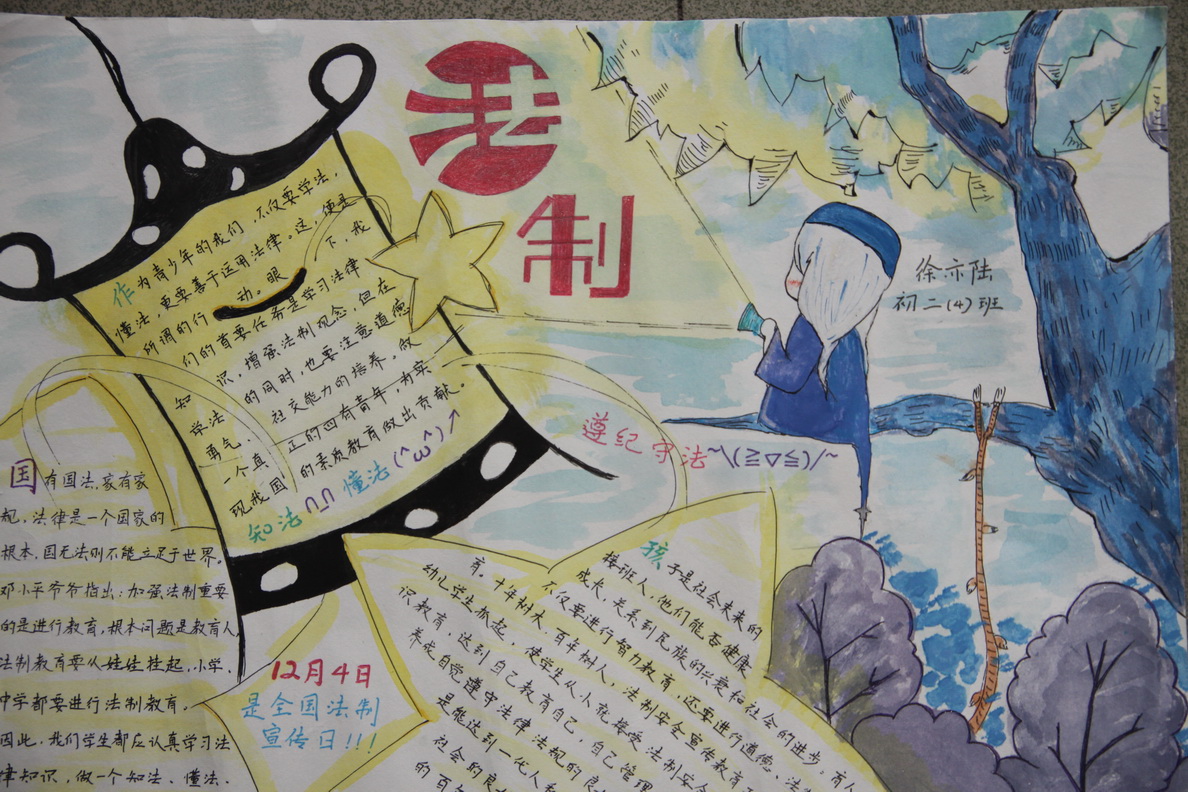 法
制
徐亦陆
初二(4)班
作为青少年的我们，不仅要学法，
懂法，更要善于运用法律。这，便是
所谓的行动。眼下，我
们的首要任务是学习法律
知识，增强法制观念，但在
学法的同时，也要注意道德
勇气，社交能力的培养。做
一个真正的四有青年，为实
现我国的素质教育做出贡献。
知法 懂法 (^ω^)↗
遵纪守法~\(≧▽≦)/~
国有国法，家有家
规，法律是一个国家的
根本，国无法则不能立足于世界。
邓小平爷爷指出：加强法制重要
的是进行教育，根本问题是教育人
法制教育要从娃娃抓起，小学、
中学都要进行法制教育。
因此，我们学生都应认真学习法
律知识，做一个知法、懂法、
12月4日
是全国法制
宣传日!!!
孩子是社会未来的
接班人，他们能否健康
成长，关系到民族的兴衰和社会的进步，育人
不仅要进行智力教育，还要进行道德、法
育。十年树木，百年树人，法制安全宣传教育
幼儿学生抓起，使学生从小就接受法制安
识教育，达到自己教育自己，自己管理
养成自觉遵守法律法规的良
是能达到一代人
社会的良
的百